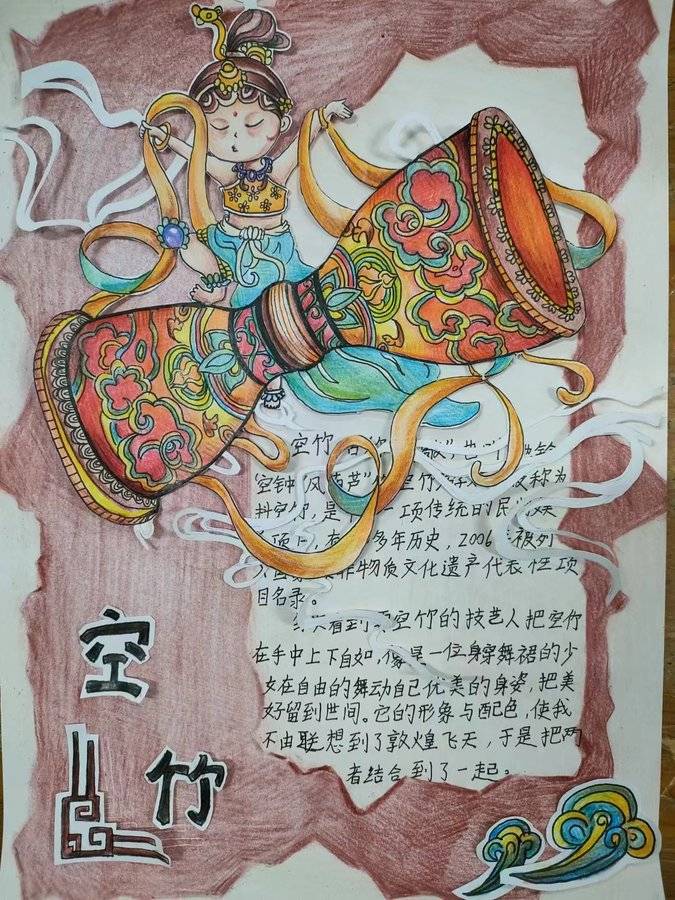 空竹
空竹
空钟 风葫芦 空竹 称为
抖空竹，是 一项传统的民
多年历史，2006 被列
物质文化遗产代表性项
目名录。
看到 空竹的技艺人把空竹
在手中上下自如，像是一位身穿舞裙的少
女在自由的舞动自己优美的身姿，把美
好留到世间。它的形象与配色，使我
不由联想到了敦煌飞天，于是把两
者结合到了一起。